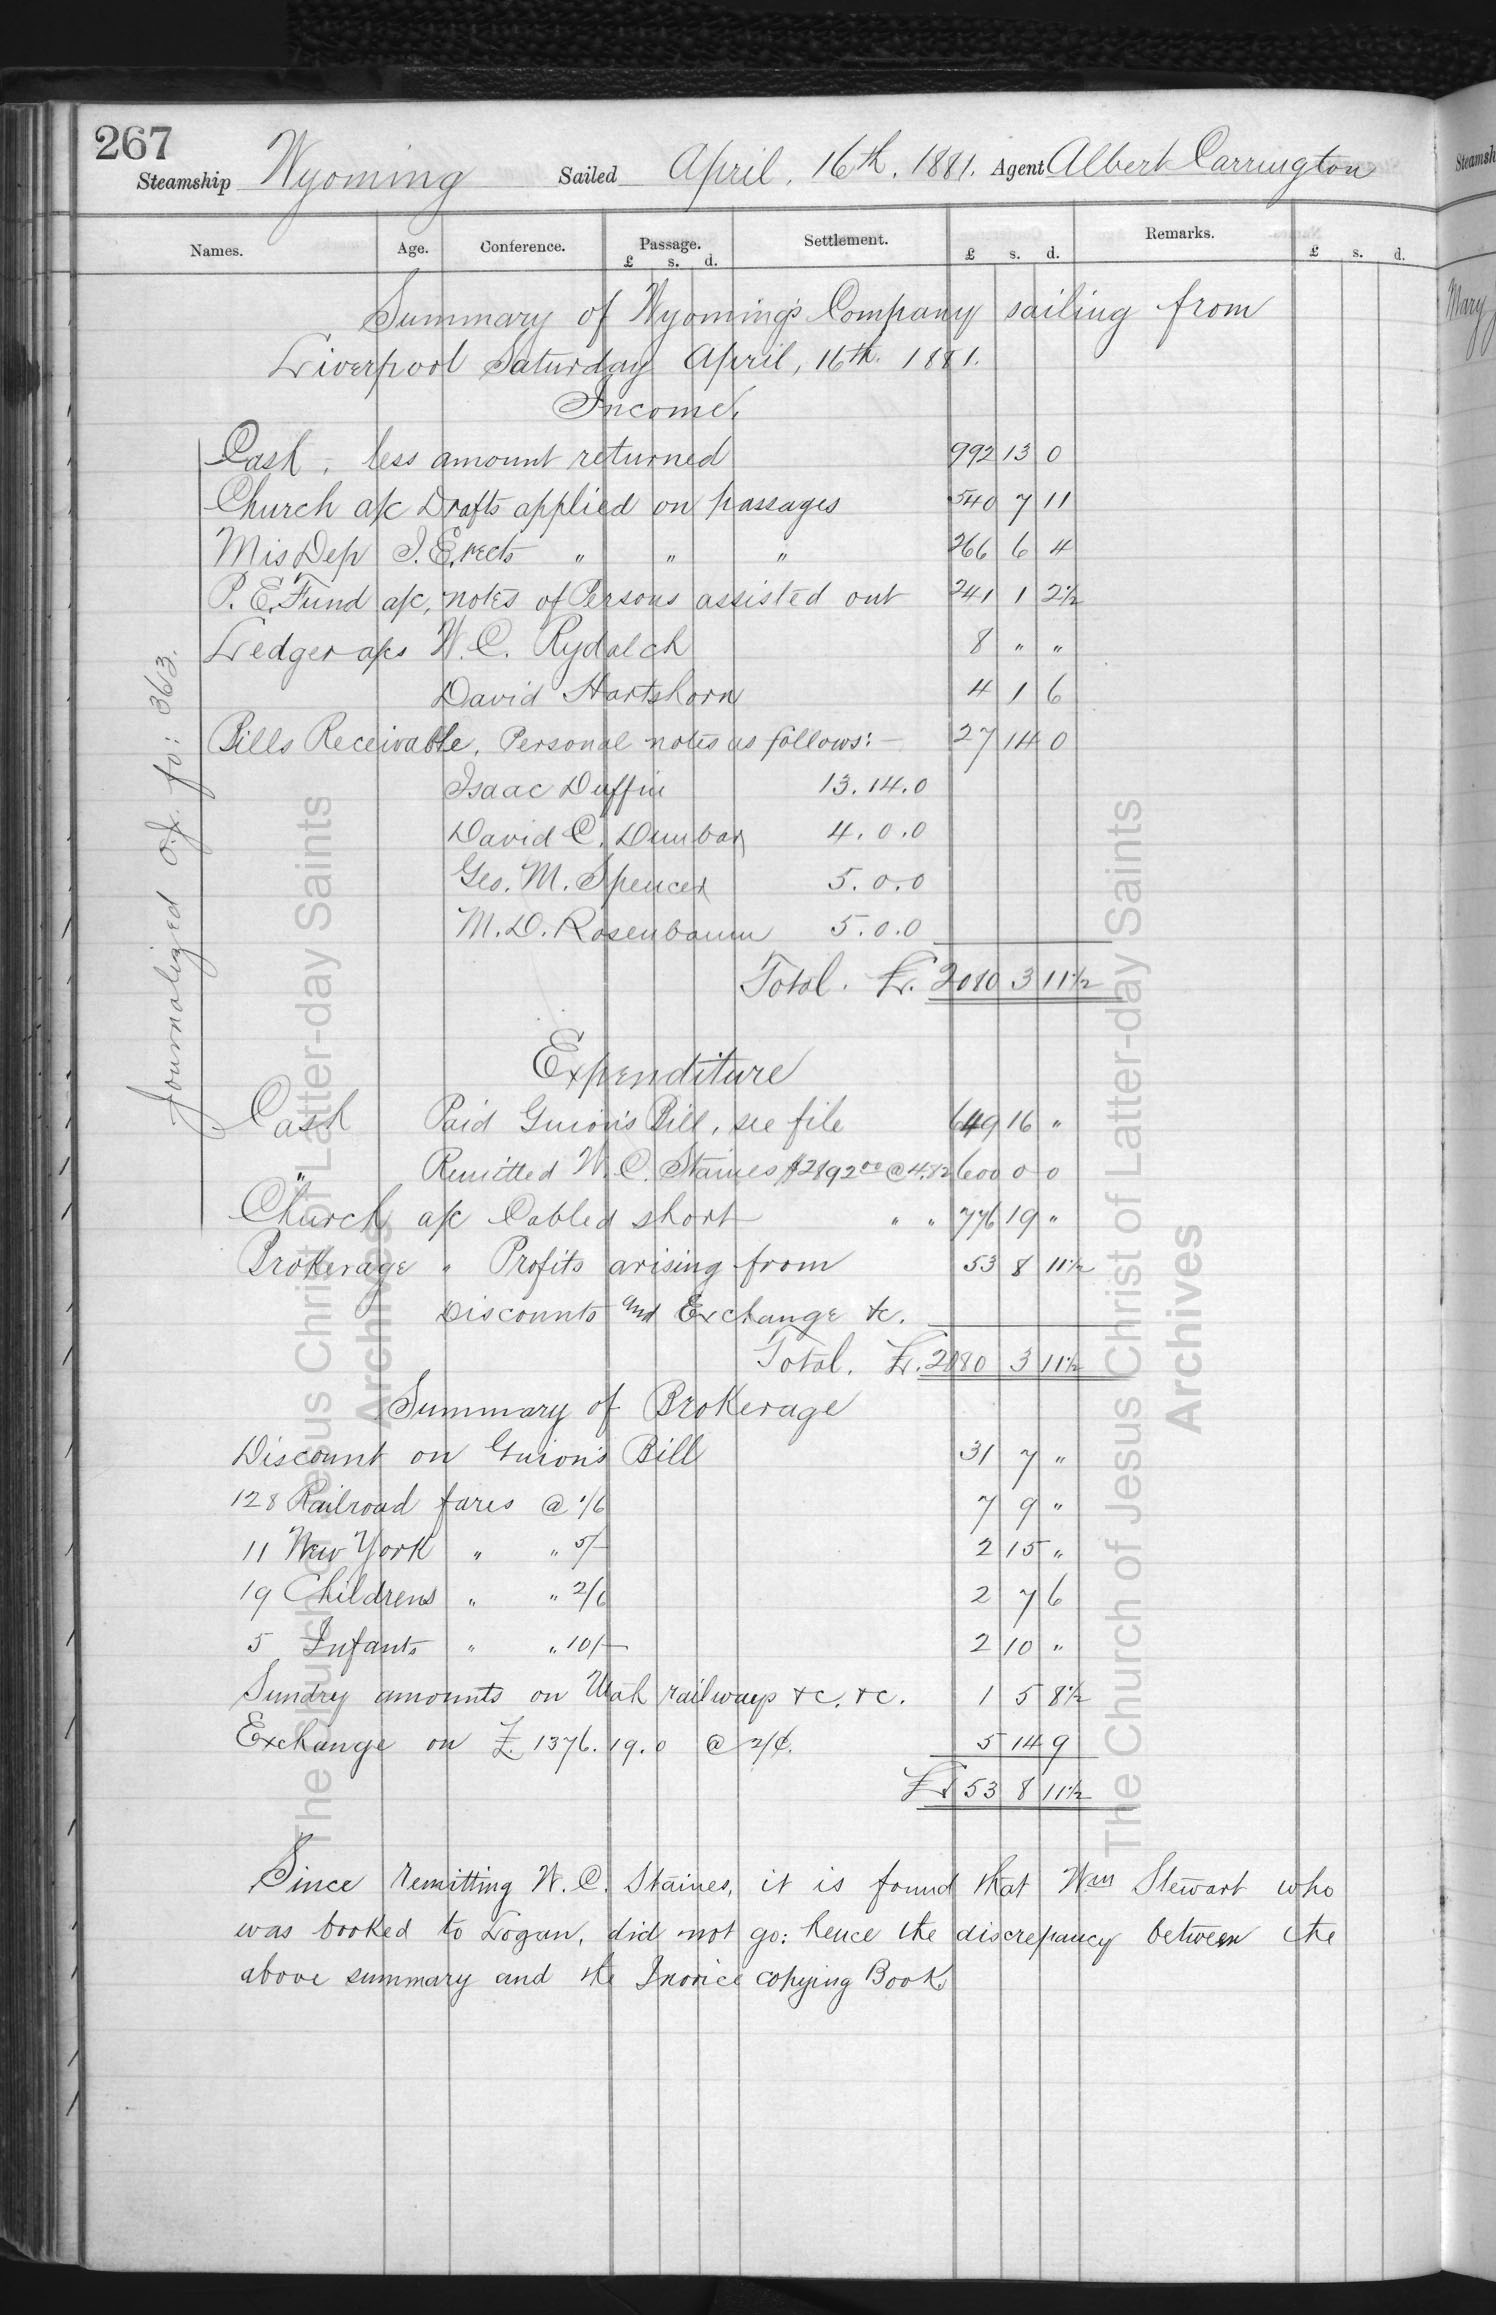 267
Steamship Wyoming Sailed April, 16th, 1881. Agent Albert Carrington
Names. Age. Conference. Passage. £ s. d. Settlement. £ s. d. Remarks. £ s. d.
Summary of Wyoming's Company sailing from
Liverpool Saturday April, 16th. 1881.
Income.
Cash, less amount returned 992 13 0
Church a/c Drafts applied on passages 540 7 11
Mis Dep I. E. rects " " " 266 6 4
P. E. Fund a/c, notes of Persons assisted out 241 1 2½
Ledger a/cs W. C. Rydalch 8 " "
David Hartshorn 4 1 6
Bills Receivable, Personal notes as follows:— 27 14 0
Isaac Duffin 13. 14. 0
David C. Dunbar 4. 0. 0
Geo. M. Spencer 5. 0. 0
M. D. Rosenbaum 5. 0. 0
Total. £. 2080 3 11½
Expenditure
Cash Paid Guion's Bill, see file 649 16 "
" Remitted W. C. Staines $2892 00 @ 4.82 600 0 0
Church a/c Cabled short " " 776 19 "
Brokerage " Profits arising from 53 8 11½
Discounts and Exchange &c.
Total. £. 2080 3 11½
Summary of Brokerage
Discount on Guion's Bill 31 7 "
128 Railroad fares @ 1/6 7 9 "
11 New York " " 5/- 2 15 "
19 Childrens " " 2/6 2 7 6
5 Infants " " 10/- 2 10 "
Sundry amounts on Utah railways &c. &c. 1 5 8½
Exchange on £. 1376. 19. 0 @ 2/¢. 5 14 9
£ 53 8 11½
Since remitting W. C. Staines, it is found that Wm Stewart who
was booked to Logan, did not go: hence the discrepancy between the
above summary and the Invoice copying Book
Journalized O.J. fo: 363.
The Church of Jesus Christ of Latter-day Saints
Archives
The Church of Jesus Christ of Latter-day Saints
Archives
Steamsh
Mary